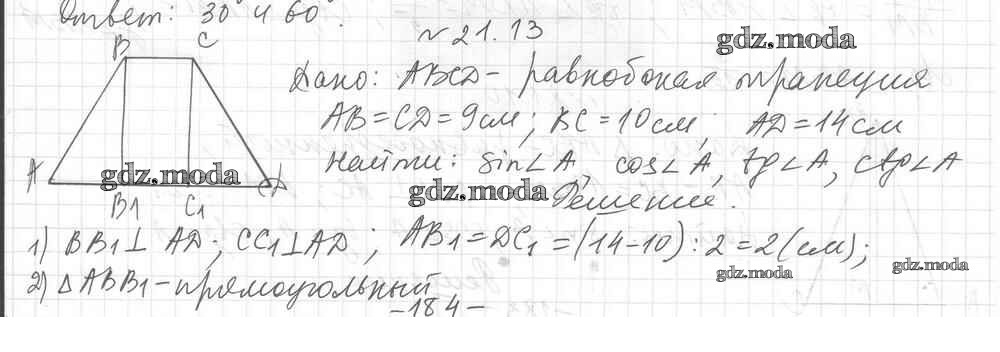 Ответ: 30° и 60°.
№ 21.13
gdz.moda
B C
Дано: ABCD - равнобокая трапеция
AB = CD = 9 см; BC = 10 см; AD = 14 см
Найти: sin∠A, cos∠A, tg∠A, ctg∠A
A D
gdz.moda
gdz.moda
B1 C1
Решение.
1) BB1 ⊥ AD; CC1 ⊥ AD; AB1 = DC1 = (14-10) : 2 = 2 (см);
gdz.moda
gdz.moda
2) △ABB1 - прямоугольный
- 184 -